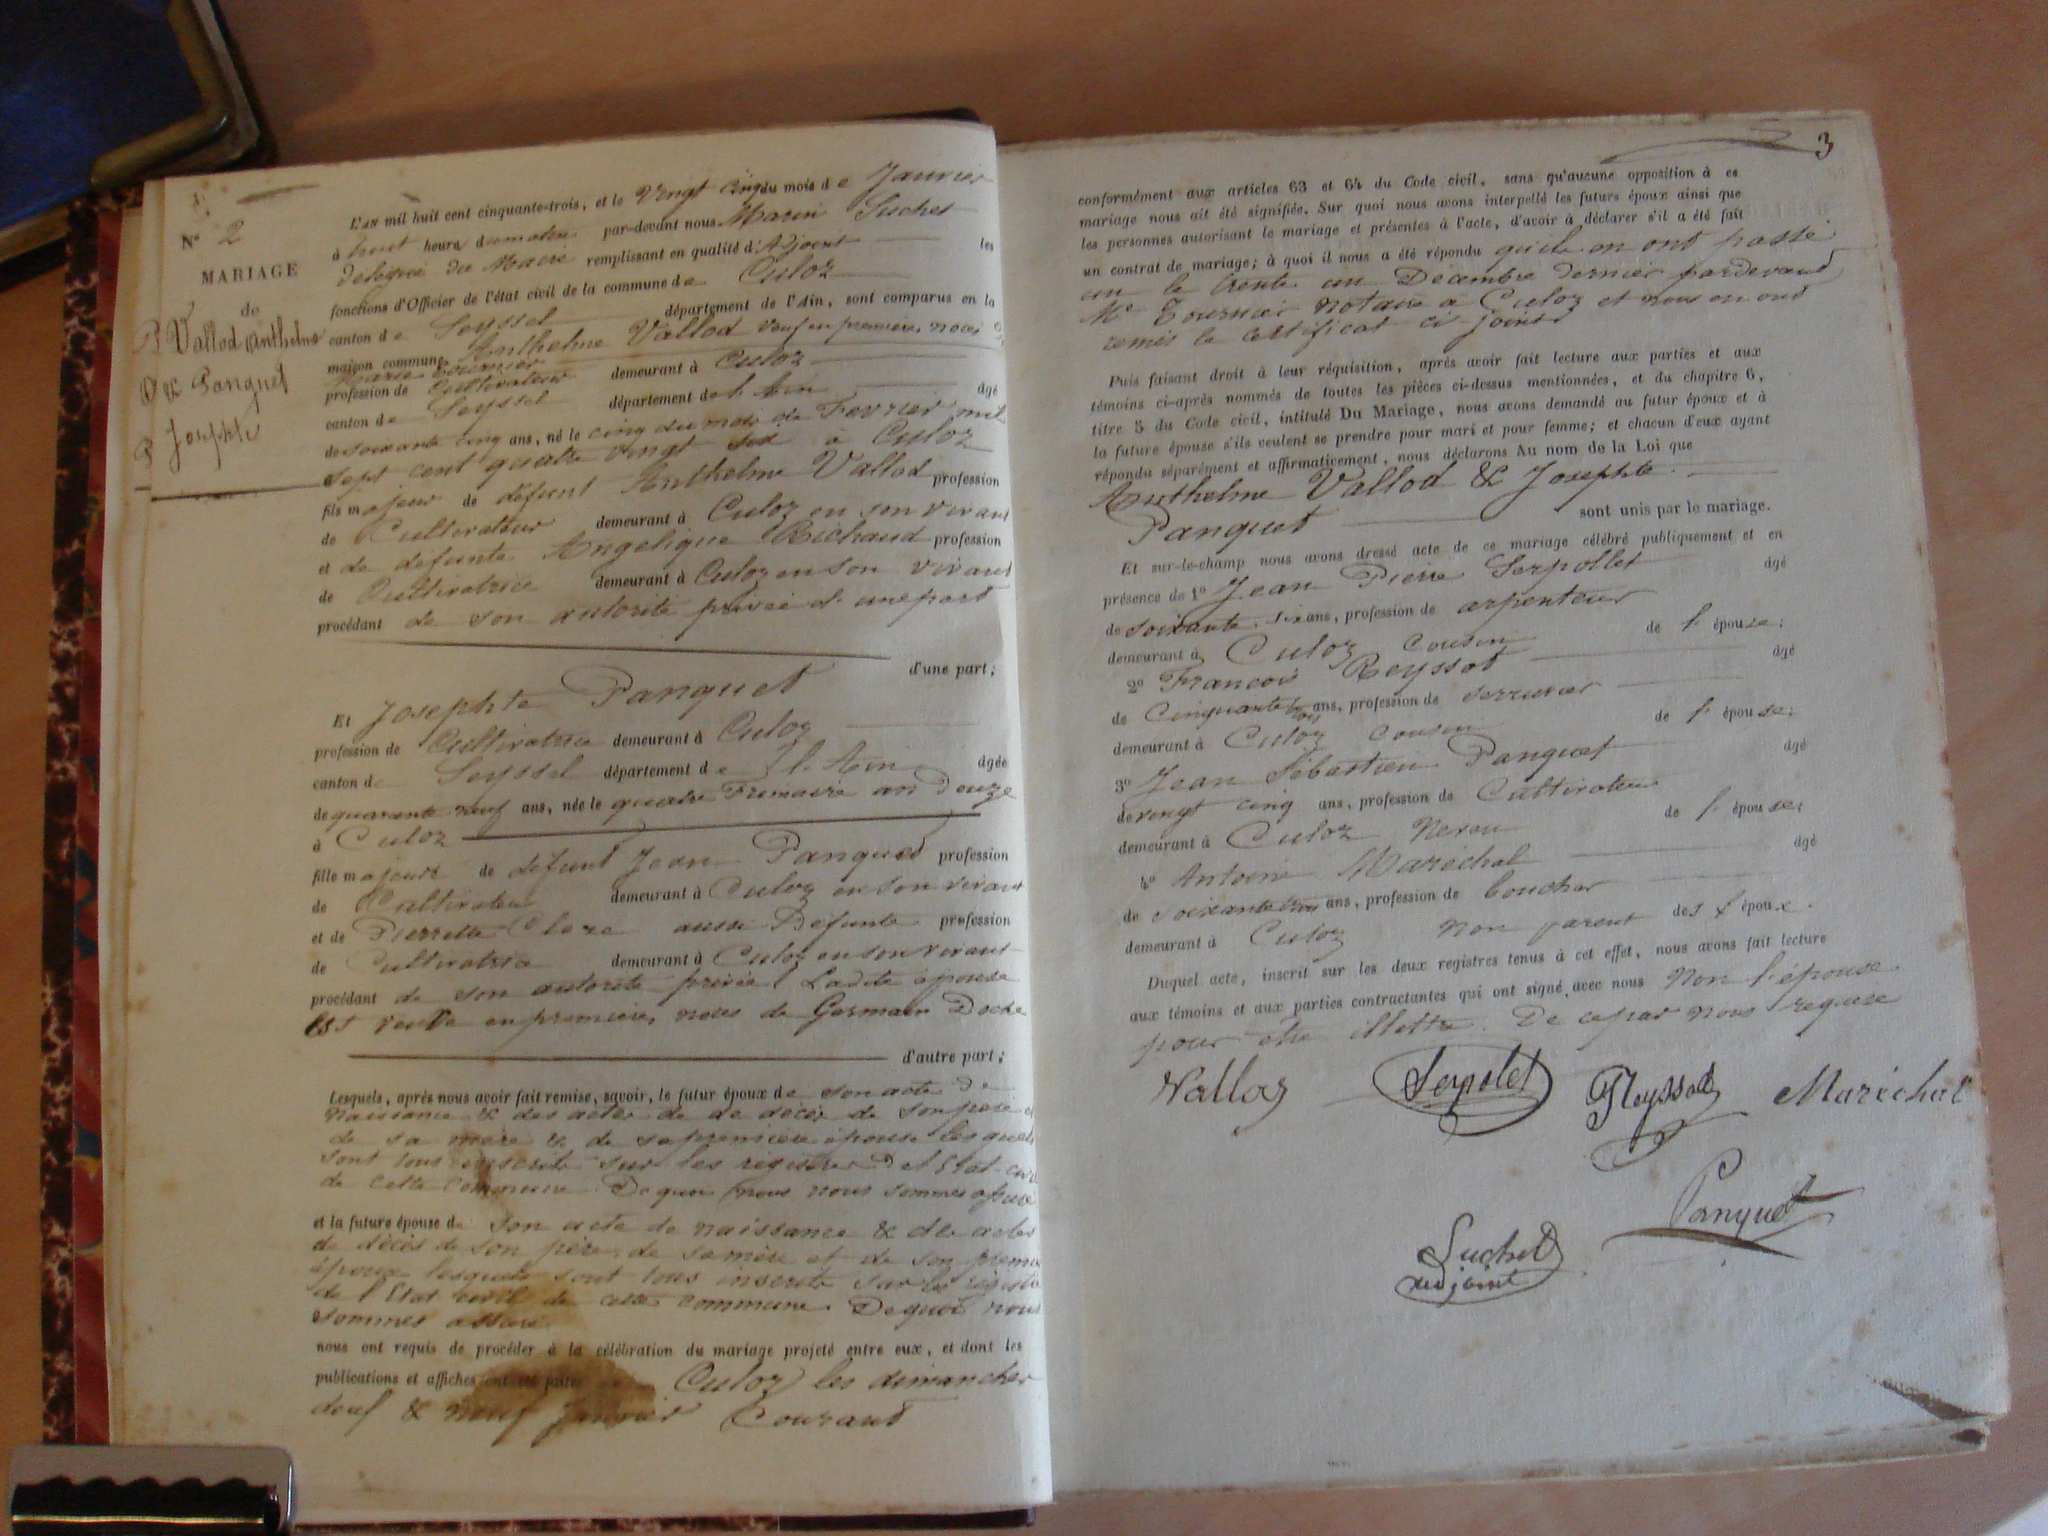 N° 2
MARIAGE
de
Vallod Anthelme
& Panquet
Josephte
L'an mil huit cent cinquante-trois, et le vingt cinq du mois de Janvier
à huit heures du matin par-devant nous Marin Suchet
délégué du Maire remplissant en qualité d'Adjoint les
fonctions d'Officier de l'état civil de la commune de Culoz
canton de Seyssel département de l'Ain, sont comparus en la
maison commune Anthelme Vallod veuf en premières noces de
Marie Fournier
profession de Cultivateur demeurant à Culoz
canton de Seyssel département de l'Ain âgé
de soixante cinq ans, né le cinq du mois de Fevrier mil
sept cent quatre vingt à Culoz
fils majeur de défunt Anthelme Vallod profession
de Cultivateur demeurant à Culoz en son vivant
et de défunte Angelique Richaud profession
de Cultivatrice demeurant à Culoz en son vivant
procédant de son autorité privée d'une part
d'une part;
Et Josephte Panquet
profession de Cultivatrice demeurant à Culoz
canton de Seyssel département de l'Ain âgée
de quarante neuf ans, née le quatre Frimaire an Douze
à Culoz
fille majeure de défunt Jean Panquet profession
de Cultivateur demeurant à Culoz en son vivant
et de Pierrette Claze aussi Défunte profession
de Cultivatrice demeurant à Culoz en son vivant
procédant de son autorité privée Ladite épouse
est veuve en premières noces de Germain Doche
d'autre part;
Lesquels, après nous avoir fait remise, savoir, le futur époux de son acte de
naissance & des actes de de décès de son père &
de sa mère & de sa première épouse lesquels
sont tous inscrits sur les registres de l'Etat-civil
de cette commune. De quoi nous nous sommes assuré
et la future épouse de son acte de naissance & des actes
de décès de son père, de sa mère et de son premier
époux lesquels sont tous inscrits sur les registres
de l'Etat civil de cette commune. De quoi nous
sommes assuré.
nous ont requis de procéder à la célébration du mariage projeté entre eux, et dont les
publications et affiches ont été faites Culoz les dimanches
deuf & neuf Janvier Courant
3
conformément aux articles 63 et 64 du Code civil, sans qu'aucune opposition à ce
mariage nous ait été signifiée. Sur quoi nous avons interpellé les futurs époux ainsi que
les personnes autorisant le mariage et présentes à l'acte, d'avoir à déclarer s'il a été fait
un contrat de mariage; à quoi il nous a été répondu qu'ils en ont passé
un le trente un Décembre dernier pardevant
Me Tournier notaire à Culoz et nous en ont
remis le certificat ci-joint
Puis faisant droit à leur réquisition, après avoir fait lecture aux parties et aux
témoins ci-après nommés de toutes les pièces ci-dessus mentionnées, et du chapitre 6,
titre 5 du Code civil, intitulé Du Mariage, nous avons demandé au futur époux et à
la future épouse s'ils veulent se prendre pour mari et pour femme; et chacun d'eux ayant
répondu séparément et affirmativement, nous déclarons Au nom de la Loi que
Anthelme Vallod & Josephte
Panquet sont unis par le mariage.
Et sur-le-champ nous avons dressé acte de ce mariage célébré publiquement et en
présence de 1° Jean Pierre Serpollet âgé
de soixante six ans, profession de arpenteur
demeurant à Culoz cousin de l'épouse;
2° François Reyssot âgé
de Cinquante trois ans, profession de serrurier
demeurant à Culoz cousin de l'épouse;
3° Jean Sébastien Panquet âgé
de vingt cinq ans, profession de Cultivateur
demeurant à Culoz Neveu de l'épouse;
4° Antoine Maréchal âgé
de soixante trois ans, profession de boucher
demeurant à Culoz non parent des époux.
Duquel acte, inscrit sur les deux registres tenus à cet effet, nous avons fait lecture
aux témoins et aux parties contractantes qui ont signé avec nous Non l'épouse
pour être illettré. De ce par nous requise
Vallod Serpolet Reyssot Maréchal
Panquet
Suchet
adjoint